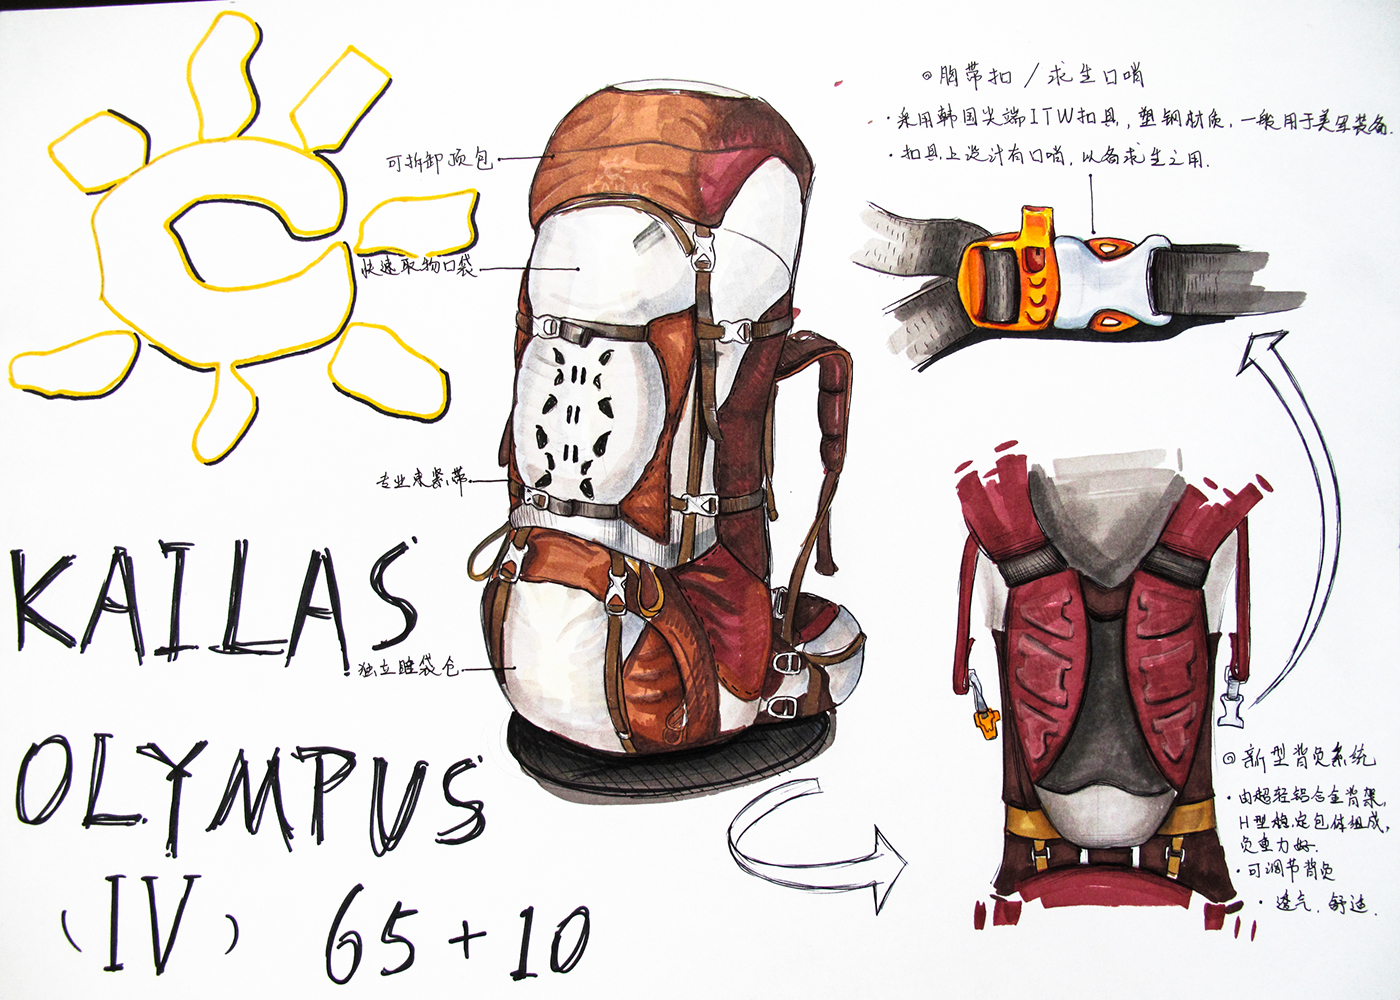 ◎胸带扣/求生口哨
·采用韩国尖端ITW扣具,塑钢材质,一般用于美军装备.
·扣具上设计有口哨,以备求生之用.
可拆卸顶包
快速取物口袋
专业束紧带
独立睡袋仓
KAILAS
OLYMPUS
(IV) 65+10
◎新型背负系统
·由超轻铝合金背架,
H型稳定包体组成,
负重力好.
·可调节背负
·透气.舒适.